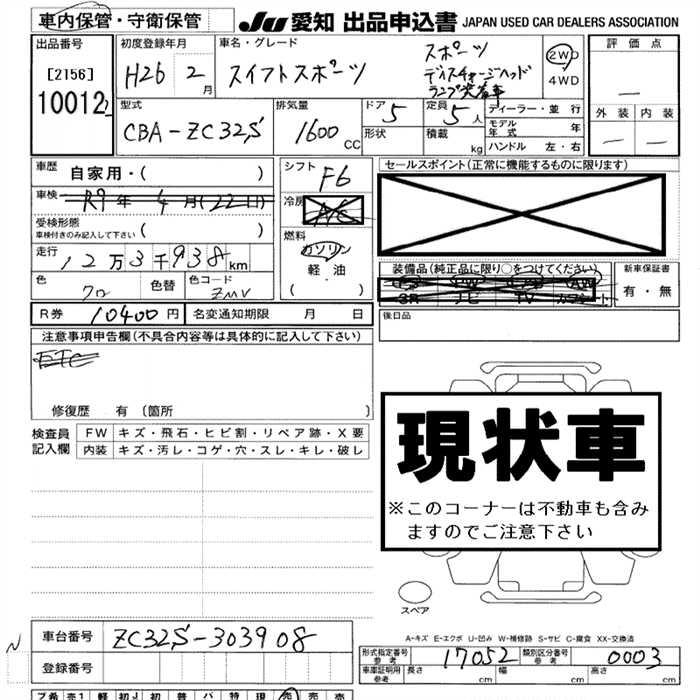 車内保管・守衛保管
JU 愛知 出品申込書 JAPAN USED CAR DEALERS ASSOCIATION
出品番号 [2156] 10012
初度登録年月 H26 2月
車名・グレード スイフトスポーツ スポーツ
ディスチャージヘッド
ランプ装着車
2WD
4WD
評価点
外装 内装
型式 CBA-ZC32S
排気量 1600 CC
ドア 5
形状
定員 5 人
積載 kg
ディーラー・並行
モデル年式 年
ハンドル 左・右
車歴 自家用・( )
車検 R9年 4月(22日)
受検形態
車検付きのみ記入して下さい ( )
走行 12万3千938km
色 クロ 色替 色コード ZMV
シフト F6
冷房 A/C
燃料 ガソリン
軽油
( ・ )
セールスポイント(正常に機能するものに限ります)
装備品(純正品に限り○をつけてください)
PS PW AW
SR ナビ TV カワシート
新車保証書
有・無
R券 10400円 名変通知期限 月 日
後日品
注意事項申告欄(不具合内容等は具体的に記入して下さい)
ETC
修復歴 有 [箇所 ]
検査員記入欄
FW キズ・飛石・ヒビ割・リペア跡・X要
内装 キズ・汚レ・コゲ・穴・スレ・キレ・破レ
現状車
※このコーナーは不動車も含み
ますのでご注意下さい
スペア
A-キズ E-エクボ U-凹み W-補修跡 S-サビ C-腐食 XX-交換済
車台番号 ZC32S-303908
登録番号
型式指定番号 参考 17052 類別区分番号 参考 0003
車庫証明用 参考 長さ cm 幅 cm 高さ cm